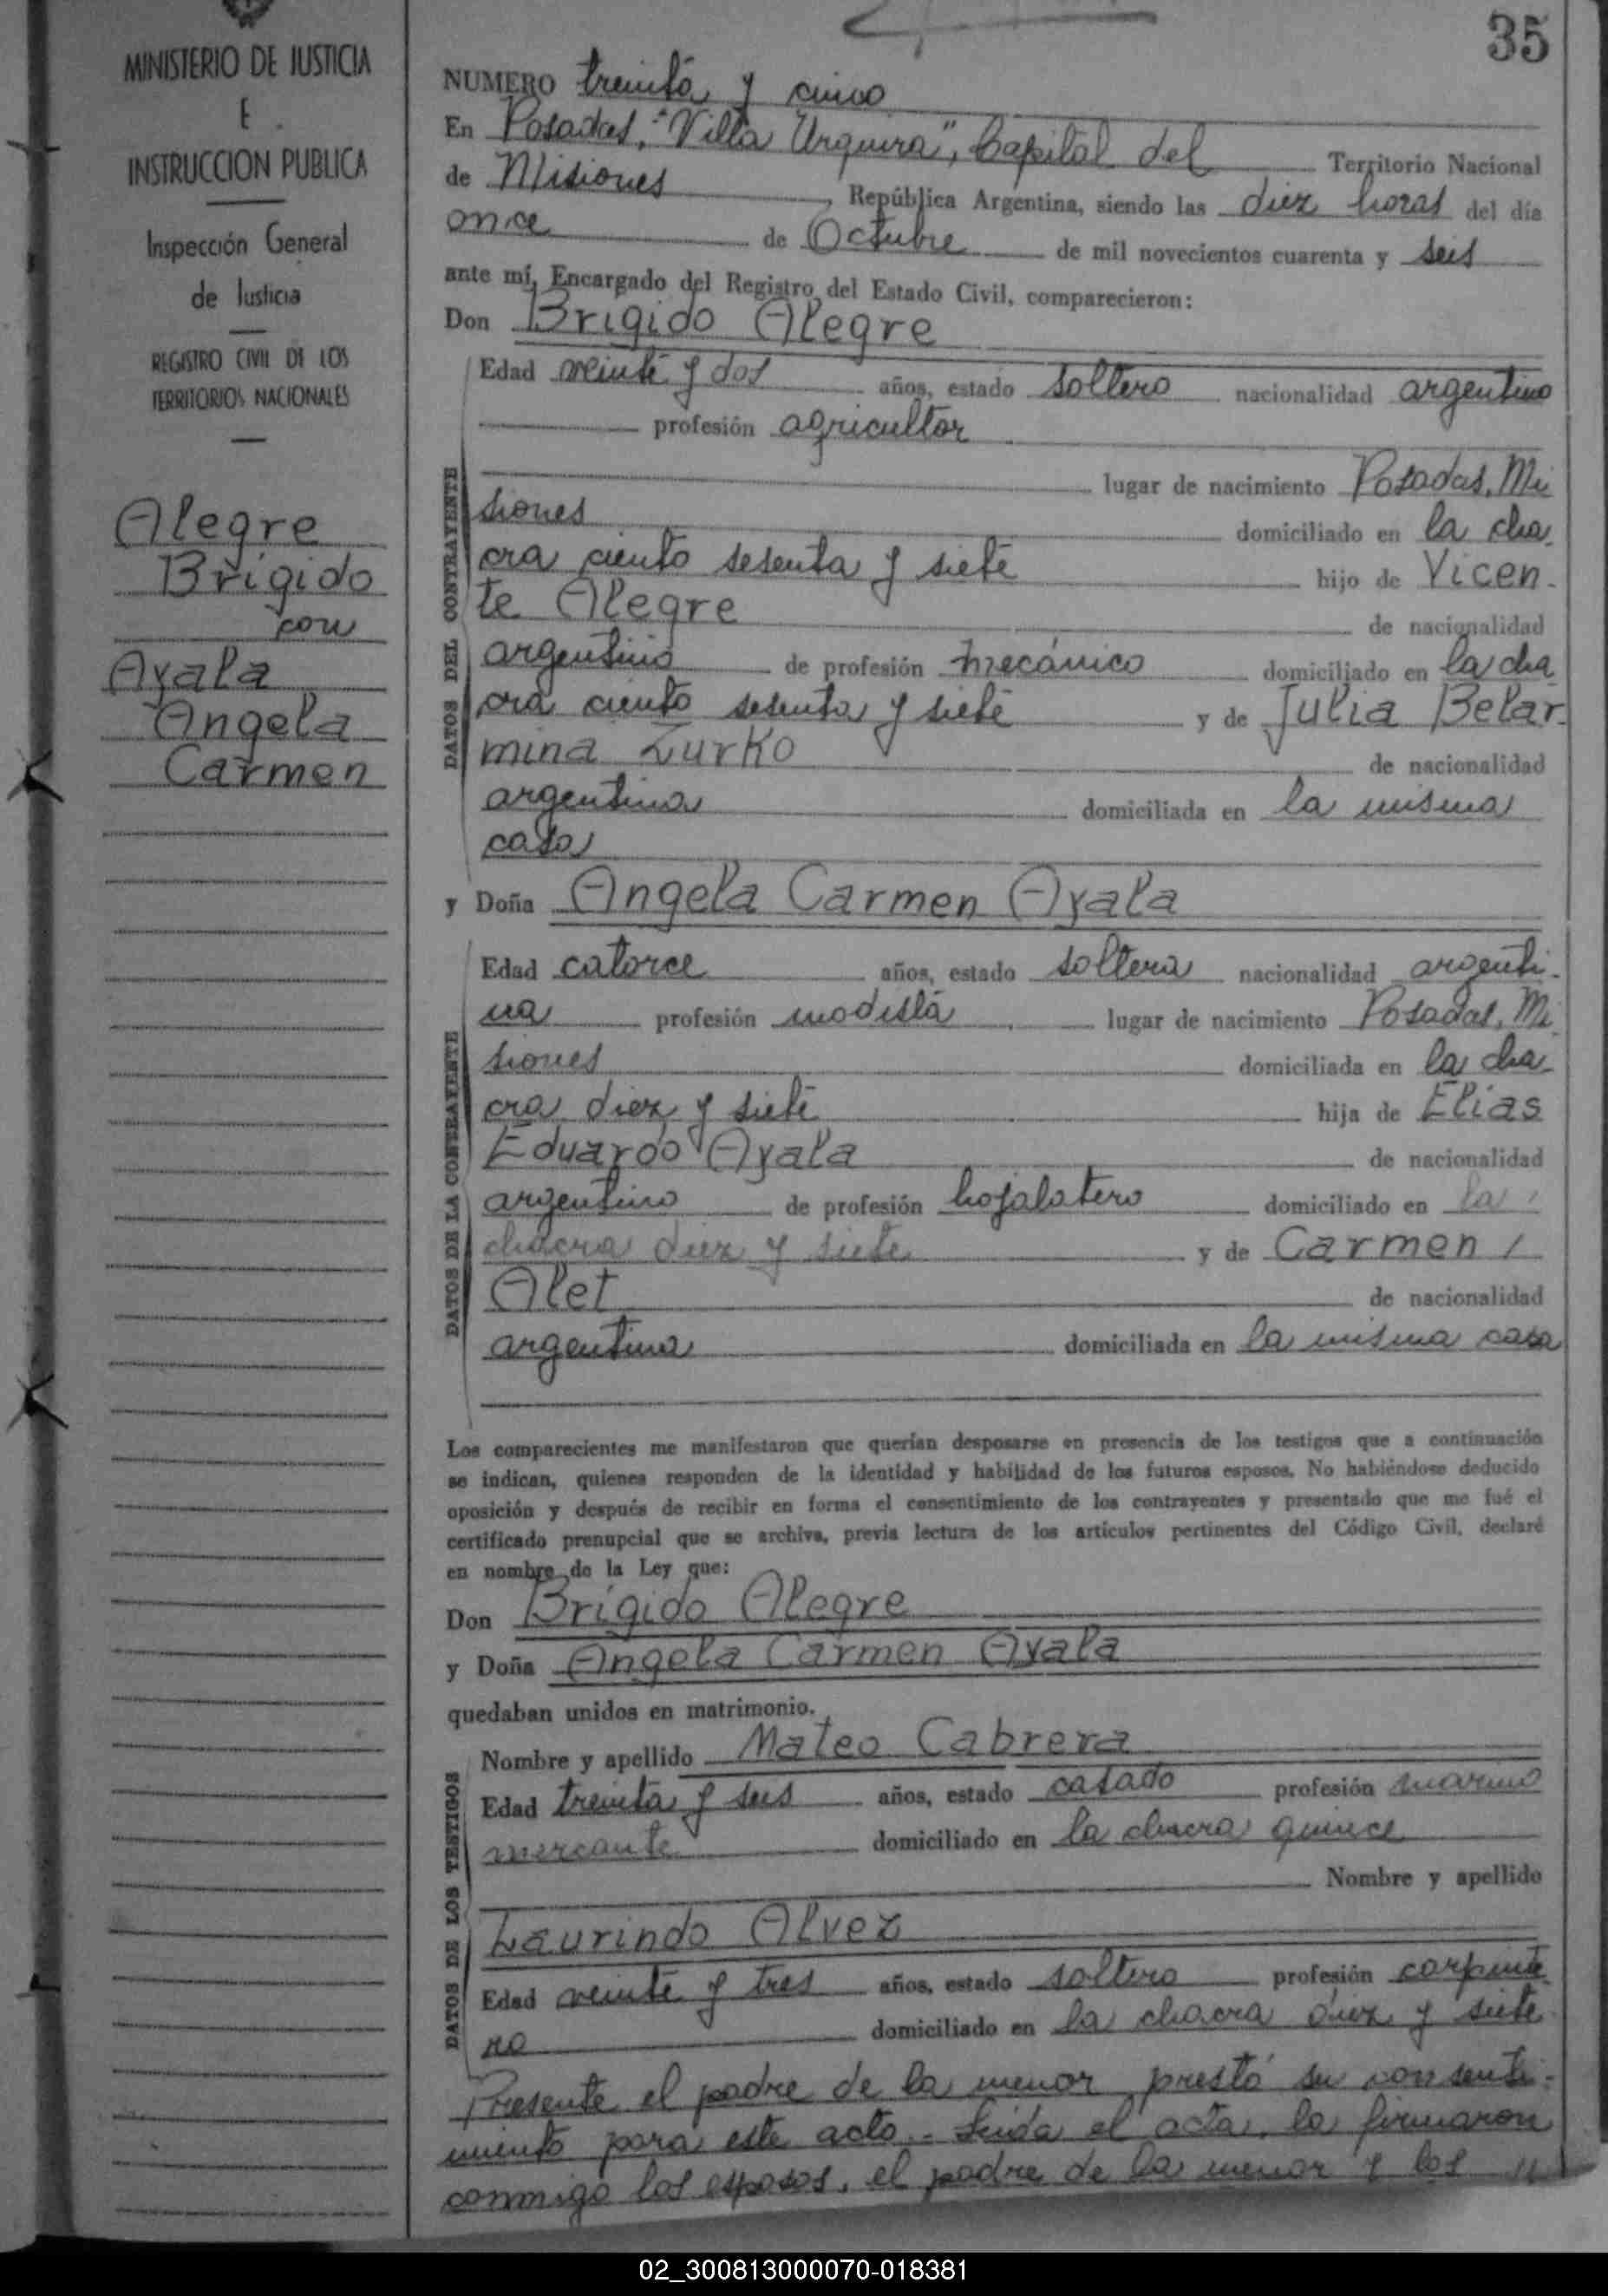 35
MINISTERIO DE JUSTICIA
E
INSTRUCCION PUBLICA
Inspección General
de Justicia
REGISTRO CIVIL DE LOS
TERRITORIOS NACIONALES
Alegre
Brígido
con
Ayala
Angela
Carmen
NUMERO treinta y cinco
En Posadas, "Villa Urquiza", Capital del Territorio Nacional
de Misiones, República Argentina, siendo las diez horas del día
once de Octubre de mil novecientos cuarenta y seis
ante mí, Encargado del Registro del Estado Civil, comparecieron:
Don Brígido Alegre
DATOS DEL CONTRAYENTE
Edad veinte y dos años, estado soltero nacionalidad argentino
profesión agricultor
lugar de nacimiento Posadas, Mi
siones domiciliado en la cha-
cra ciento sesenta y siete hijo de Vicen-
te Alegre de nacionalidad
argentino de profesión mecánico domiciliado en la cha
cra ciento sesenta y siete y de Julia Belar-
mina Zurko de nacionalidad
argentina domiciliada en la misma
casa
y Doña Angela Carmen Ayala
DATOS DE LA CONTRAYENTE
Edad catorce años, estado soltera nacionalidad argenti-
na profesión modista lugar de nacimiento Posadas, Mi-
siones domiciliada en la cha-
cra diez y siete hija de Elías
Eduardo Ayala de nacionalidad
argentino de profesión hojalatero domiciliado en la
chacra diez y siete y de Carmen
Alet de nacionalidad
argentina domiciliada en la misma casa
Los comparecientes me manifestaron que querían desposarse en presencia de los testigos que a continuación
se indican, quienes responden de la identidad y habilidad de los futuros esposos. No habiéndose deducido
oposición y después de recibir en forma el consentimiento de los contrayentes y presentado que me fué el
certificado prenupcial que se archiva, previa lectura de los artículos pertinentes del Código Civil, declaré
en nombre de la Ley que:
Don Brígido Alegre
y Doña Angela Carmen Ayala
quedaban unidos en matrimonio.
DATOS DE LOS TESTIGOS
Nombre y apellido Mateo Cabrera
Edad treinta y seis años, estado casado profesión marino
mercante domiciliado en la chacra quince
Nombre y apellido
Laurindo Alvez
Edad veinte y tres años, estado soltero profesión carpinte-
ro domiciliado en la chacra diez y siete
Presente el padre de la menor prestó su consenti-
miento para este acto.- Leída el acta, la firmaron
conmigo los esposos, el padre de la menor y los "
02_300813000070-018381